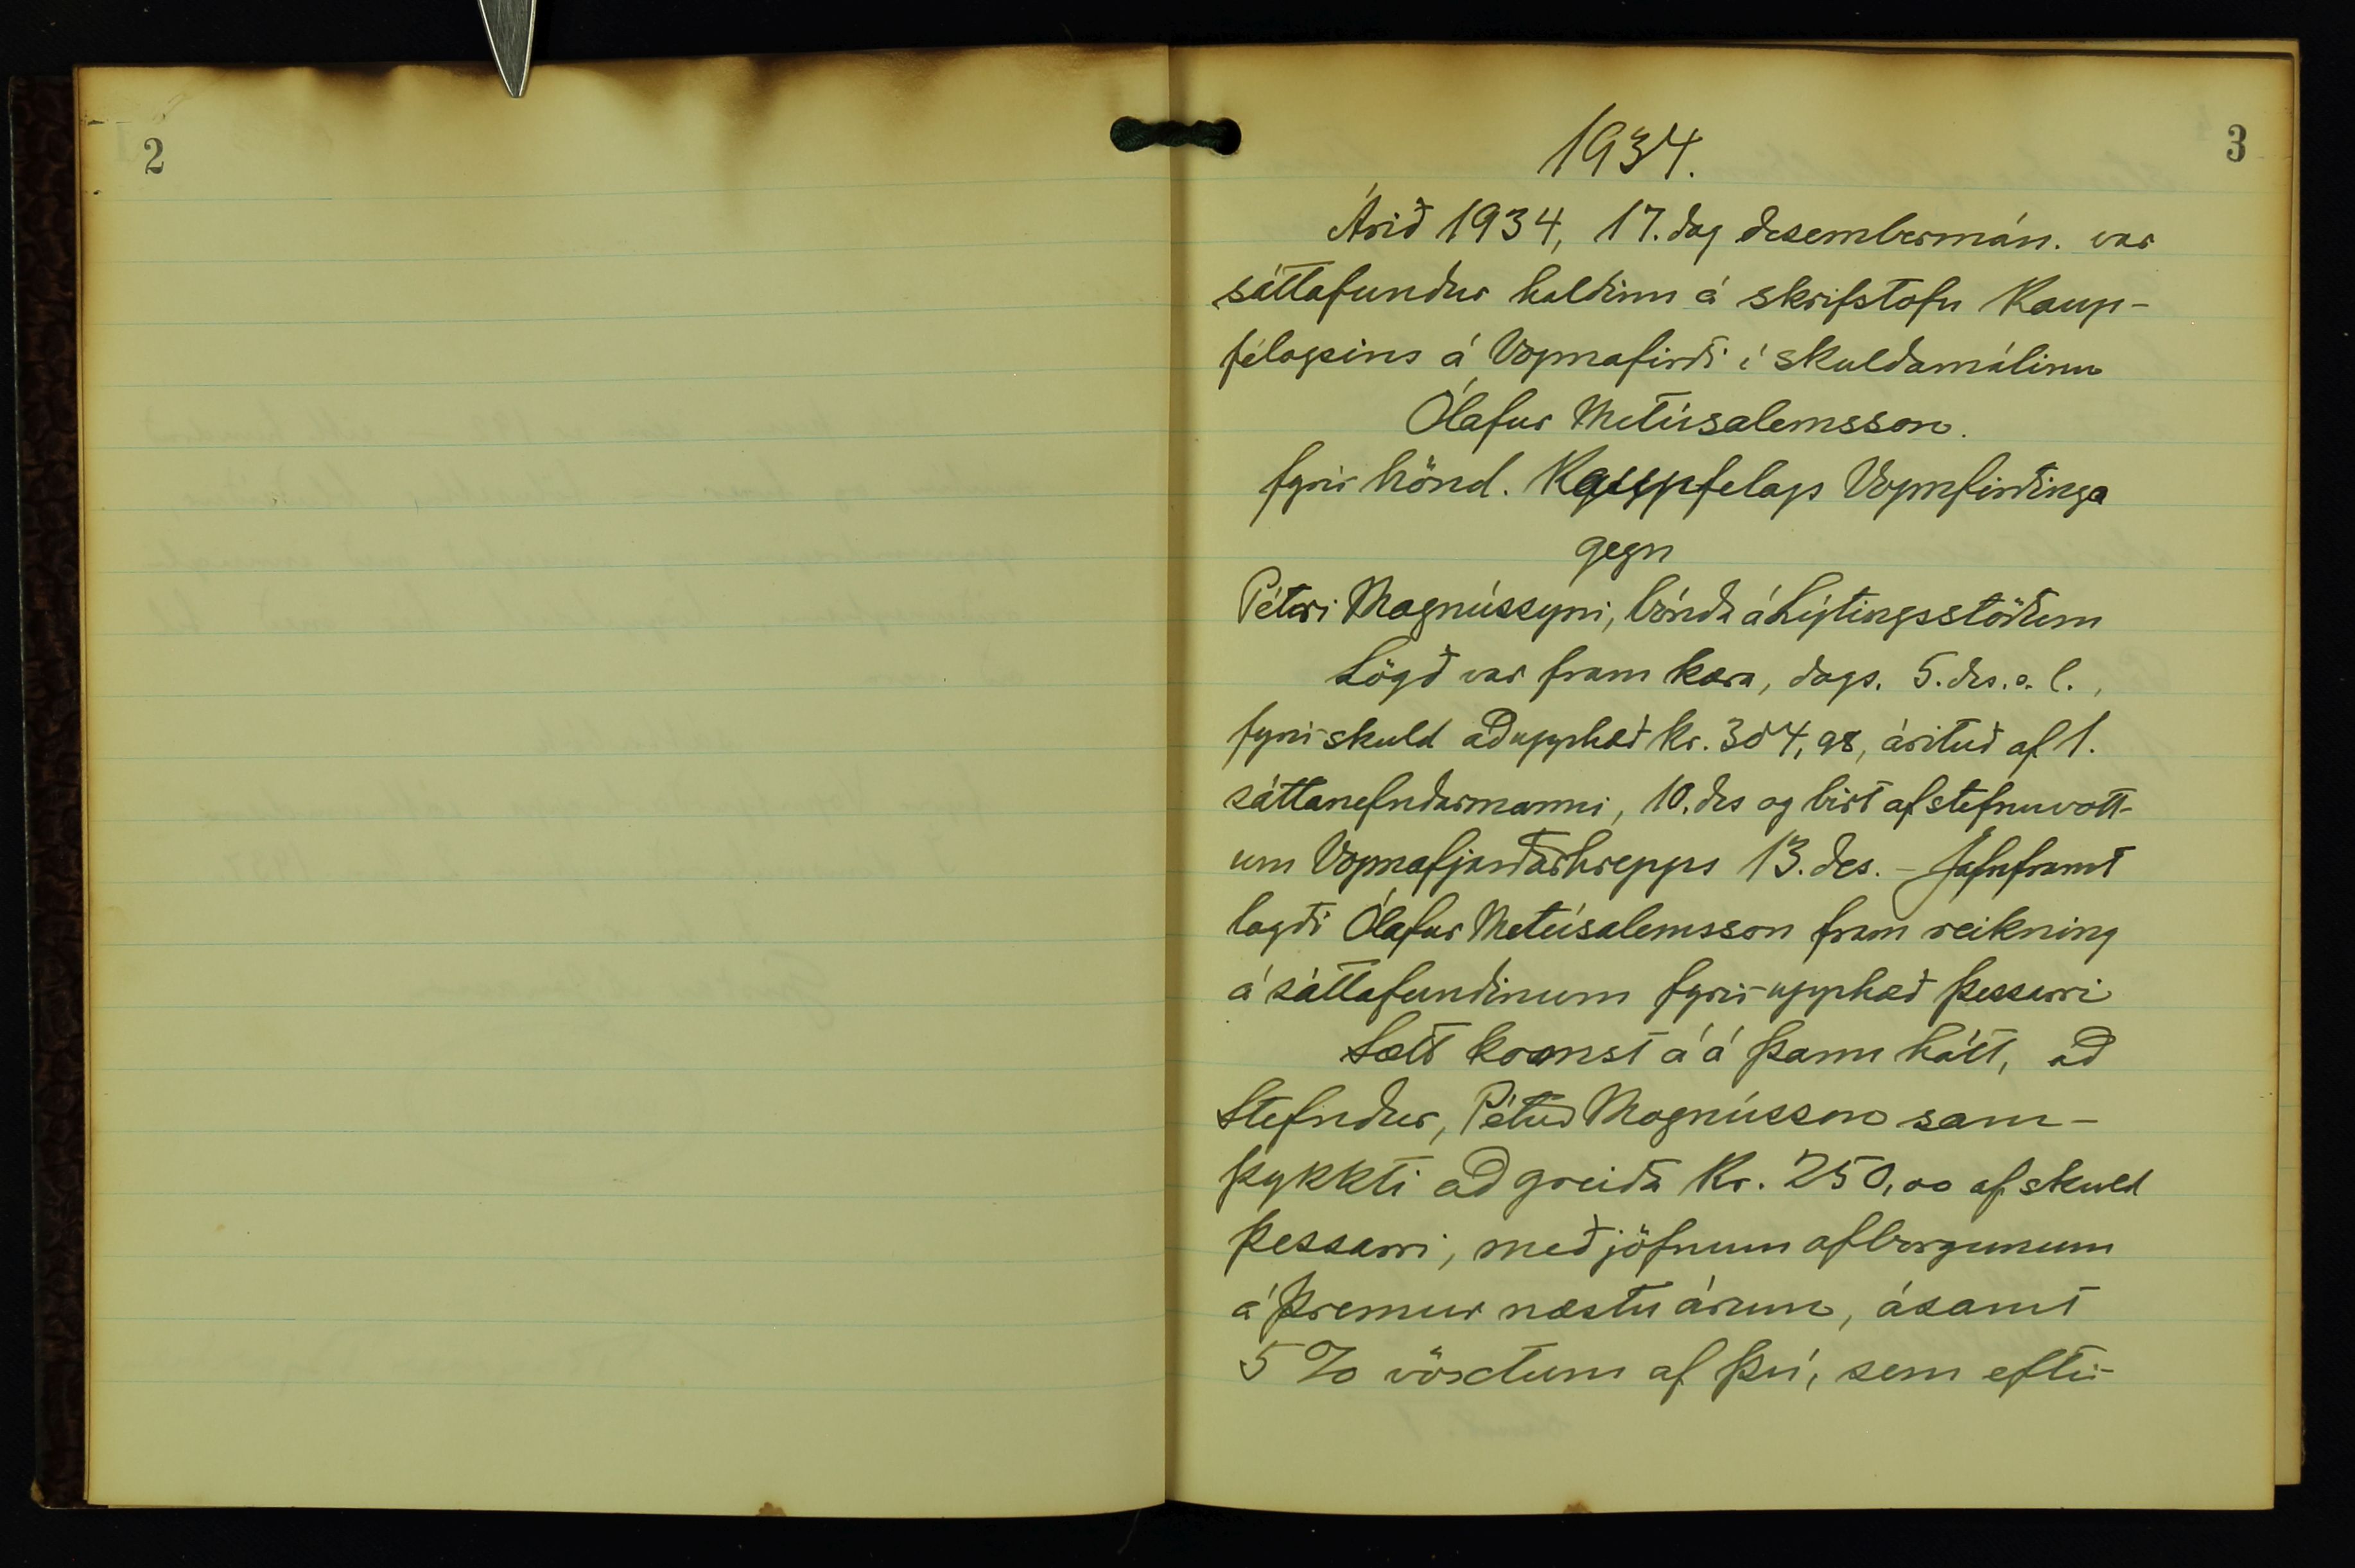 2
3
1934.
Árið 1934, 17. dag desembermán. var
sáttafundur haldinn á skrifstofu Kaup-
félagsins á Vopnafirði í skuldamálinu
Ólafur Metúsalemsson.
fyrir hönd. Kaupfelags Vopnfirðinga
gegn
Pétri Magnússyni, bónda á Lýtingsstöðum
Lögð var fram kæra, dags. 5. des. s. l.,
fyrir skuld að upphæð kr. 304,98, árituð af 1.
sáttanefndarmanni, 10. des og birt af stefnuvott-
um Vopnafjarðarhrepps 13. des. - Jafnframt
lagði Ólafur Metúsalemsson fram reikning
á sáttafundinum fyrir upphæð þessarri
Sætt komst á á þann hátt, að
Stefndur, Pétur Magnússon sam-
þykkti að greiða Kr. 250,00 af skuld
þessarri, með jöfnum afborgunum
á þremur næstu árum, ásamt
5 % vöxtum af því, sem eftir